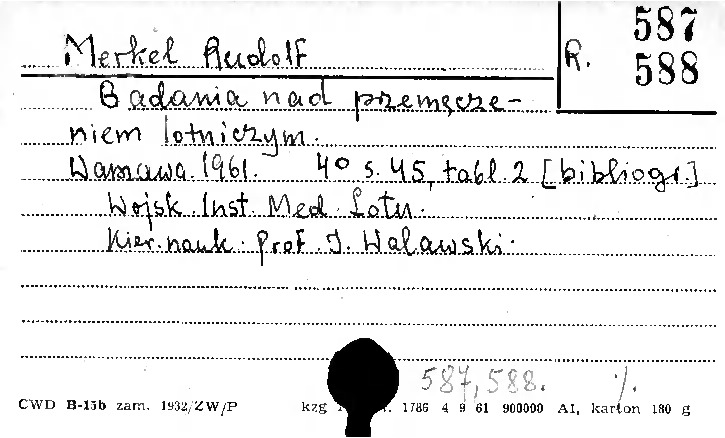 Merkel Rudolf
R. 587
588
Badania nad przemęcze-
niem lotniczym.
Warszawa. 1961. 4° s. 45, tabl. 2 [bibliogr.]
Wojsk. Inst. Med. Lotn.
Kier. nauk. Prof. J. Walawski.
587, 588. %.
CWD B-15b zam. 1932/ZW/P kzg 1786 4 9 61 900000 A1, karton 180 g